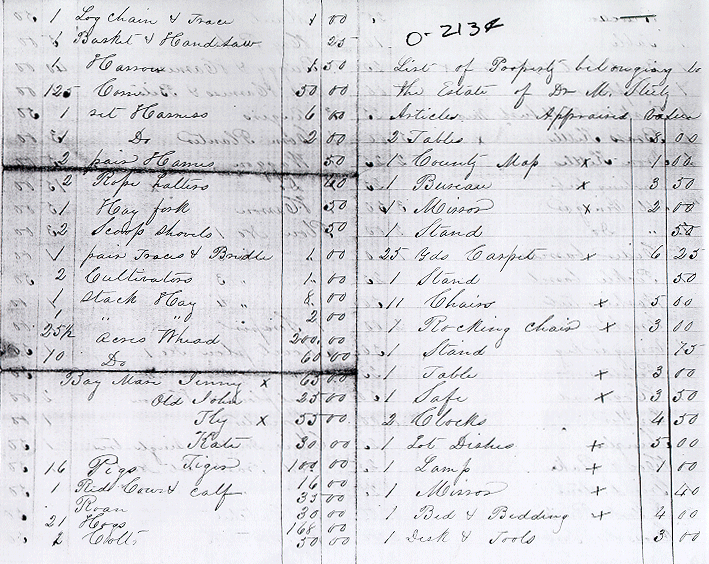 1 Log chain & Trace 1 00
1 Basket & Handsaw 25
1 Harrow 1 50
125 Corn 50 00
1 set Harness 6 00
1 Do 2 00
2 pair Hames 50
2 Rope halters 40
1 Hay fork 50
2 Scoop shovels 50
1 pair Traces & Bridle 1 00
2 Cultivators 1 00
1 stack Hay 8 00
1 " " 2 00
25½ acres Whead 200 00
10 Do 60 00
Bay Mare Jenny x 65 00
Old John 25 00
Fly x 55 00
Kate 30 00
Tiger 100 00
16 Pigs 16 00
1 Red Cow & calf 35 00
Roan 30 00
21 Hogs 168 00
2 Colts 50 00
0-213¢
List of Property belonging to
the Estate of Dr M.
Articles Appraised
2 Tables x 3 00
1 County Map x 1 00
1 Bureau x 3 50
1 Mirror x 2 00
1 Stand " 50
25 Yds Carpet x 6 25
1 Stand 50
11 Chairs x 5 00
1 Rocking chair x 3 00
1 Stand 75
1 Table x 3 00
1 Safe x 3 50
2 Clocks 4 50
1 Lot Dishes x 5 00
1 Lamp x 1 00
1 Mirror x 40
1 Bed & Bedding x 4 00
1 Disk & Tools 3 00